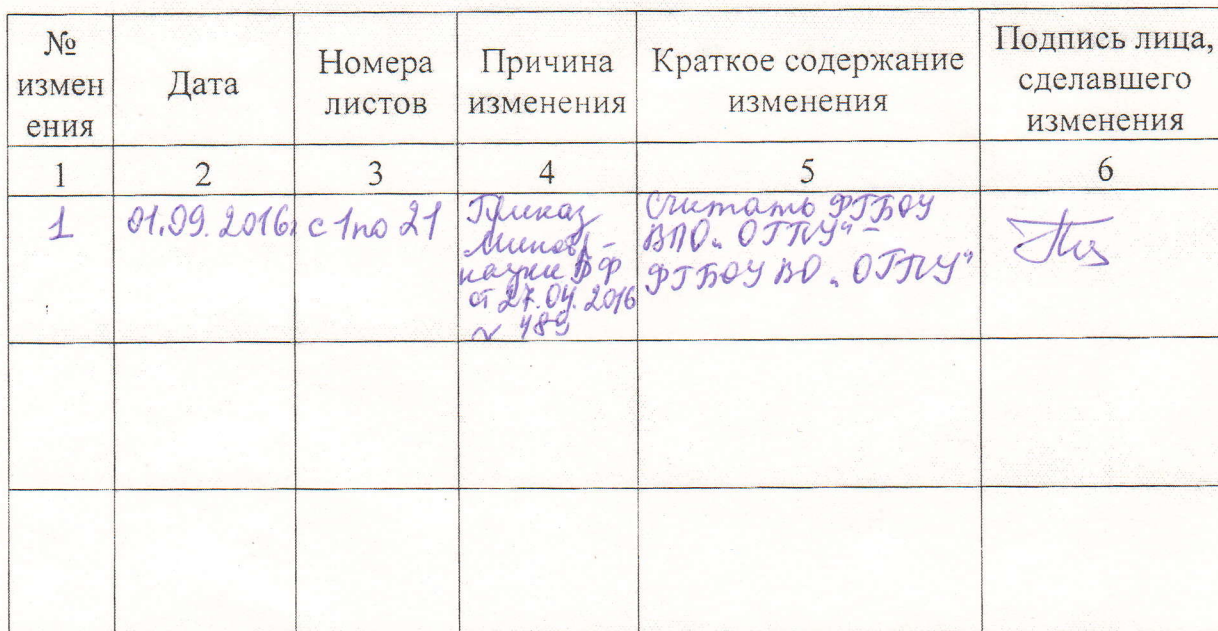 №
измен
ения
Дата
Номера
листов
Причина
изменения
Краткое содержание
изменения
Подпись лица,
сделавшего
изменения
1
2
3
4
5
6
1
01.09.2016г
с 1 по 21
Приказ
Минобр-
науки РФ
от 27.04.2016
№ 489
Считать ФГБОУ
ВПО „ОГПУ" –
ФГБОУ ВО „ОГПУ"